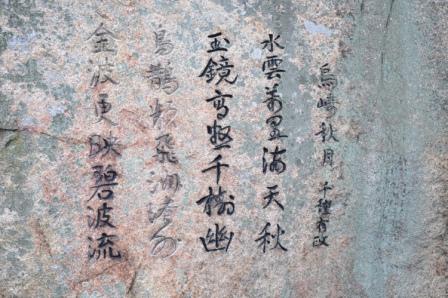 烏崎秋月 千種有政
水雲萬里海天秋
玉鏡高懸千樹幽
烏鵲頻飛洲渚外
金波更映碧波流